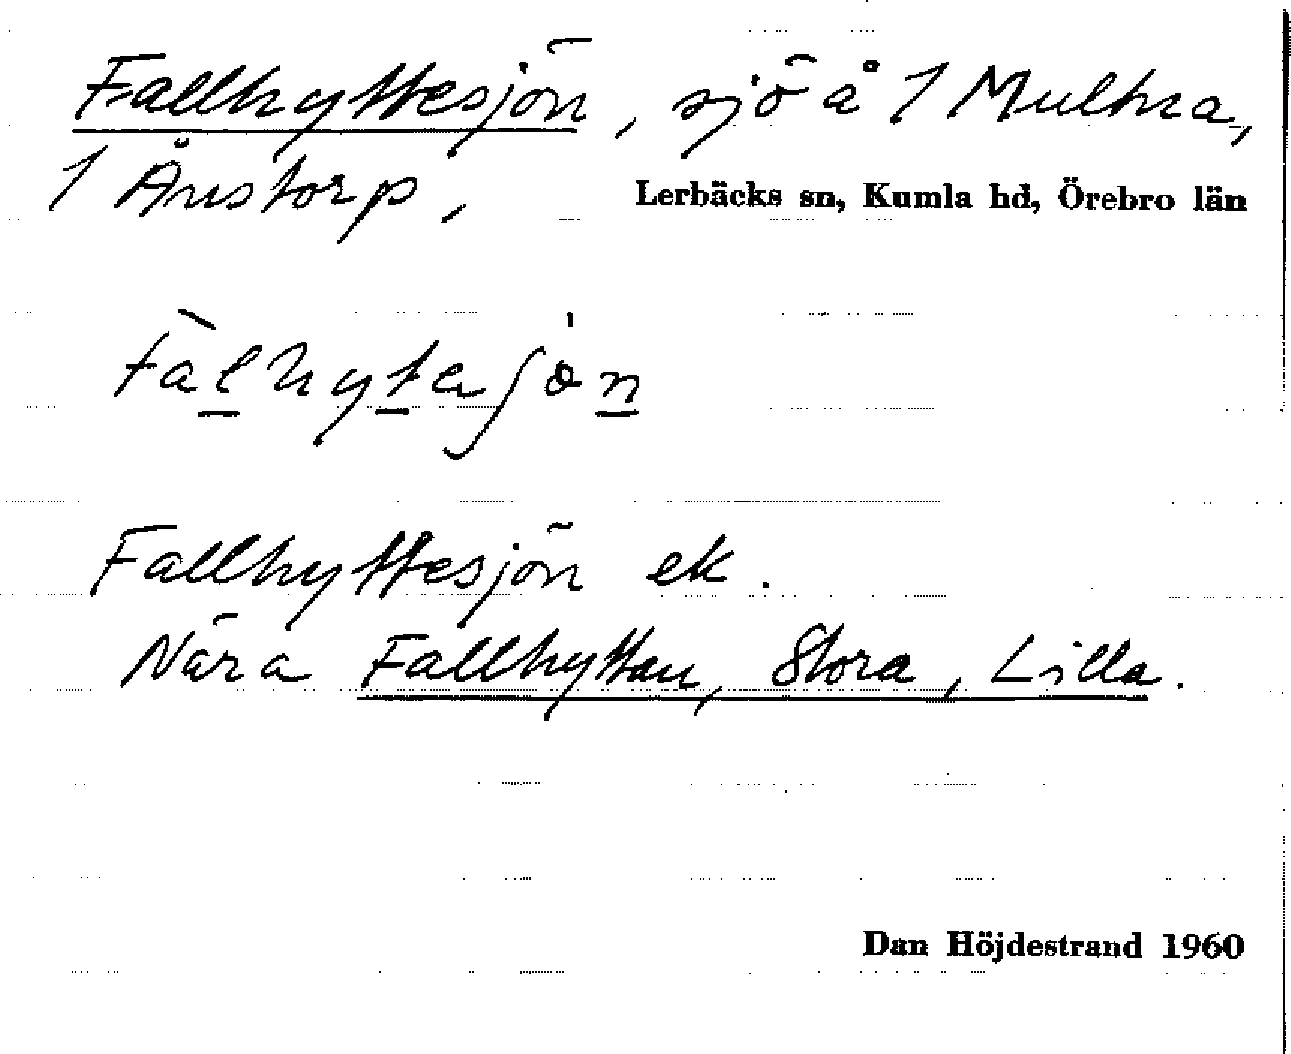 Fallhyttesjön, sjö å 1 Multna,
1 Ånstorp,
Lerbäcks sn, Kumla hd, Örebro län
fàlhytaʃö́n
Fallhyttesjön ek.
Nära Fallhyttan, Stora, Lilla.
Dan Höjdestrand 1960